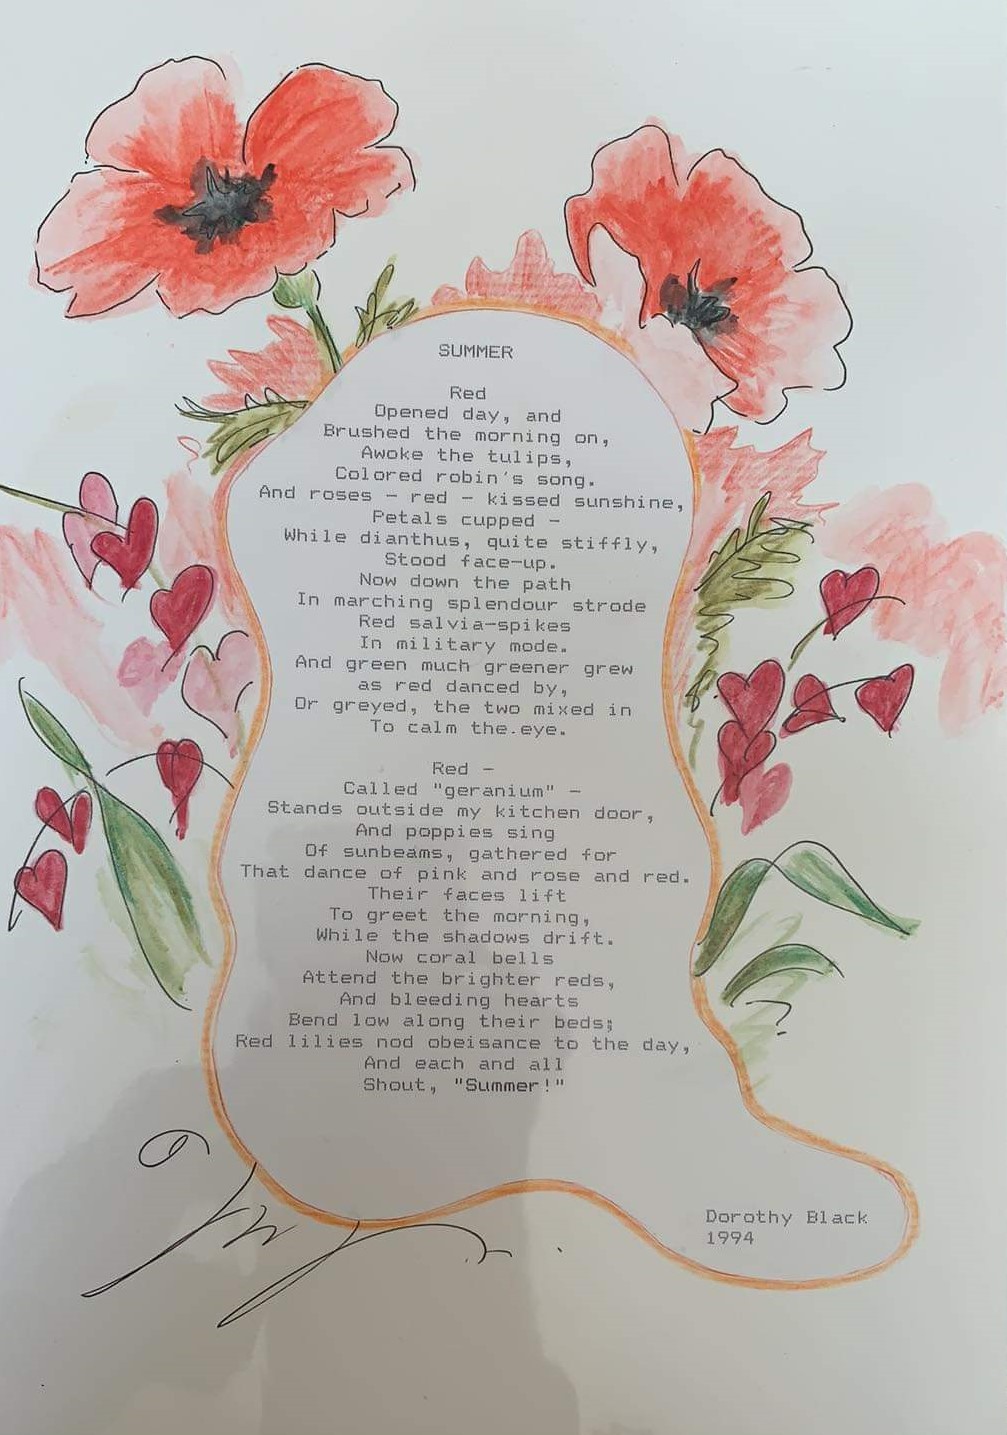 SUMMER
Red
Opened day, and
Brushed the morning on,
Awoke the tulips,
Colored robin's song.
And roses - red - kissed sunshine,
Petals cupped -
While dianthus, quite stiffly,
Stood face-up.
Now down the path
In marching splendour strode
Red salvia-spikes
In military mode.
And green much greener grew
as red danced by,
Or greyed, the two mixed in
To calm the.eye.
Red -
Called "geranium" -
Stands outside my kitchen door,
And poppies sing
Of sunbeams, gathered for
That dance of pink and rose and red.
Their faces lift
To greet the morning,
While the shadows drift.
Now coral bells
Attend the brighter reds,
And bleeding hearts
Bend low along their beds;
Red lilies nod obeisance to the day,
And each and all
Shout, "Summer!"
Dorothy Black
1994